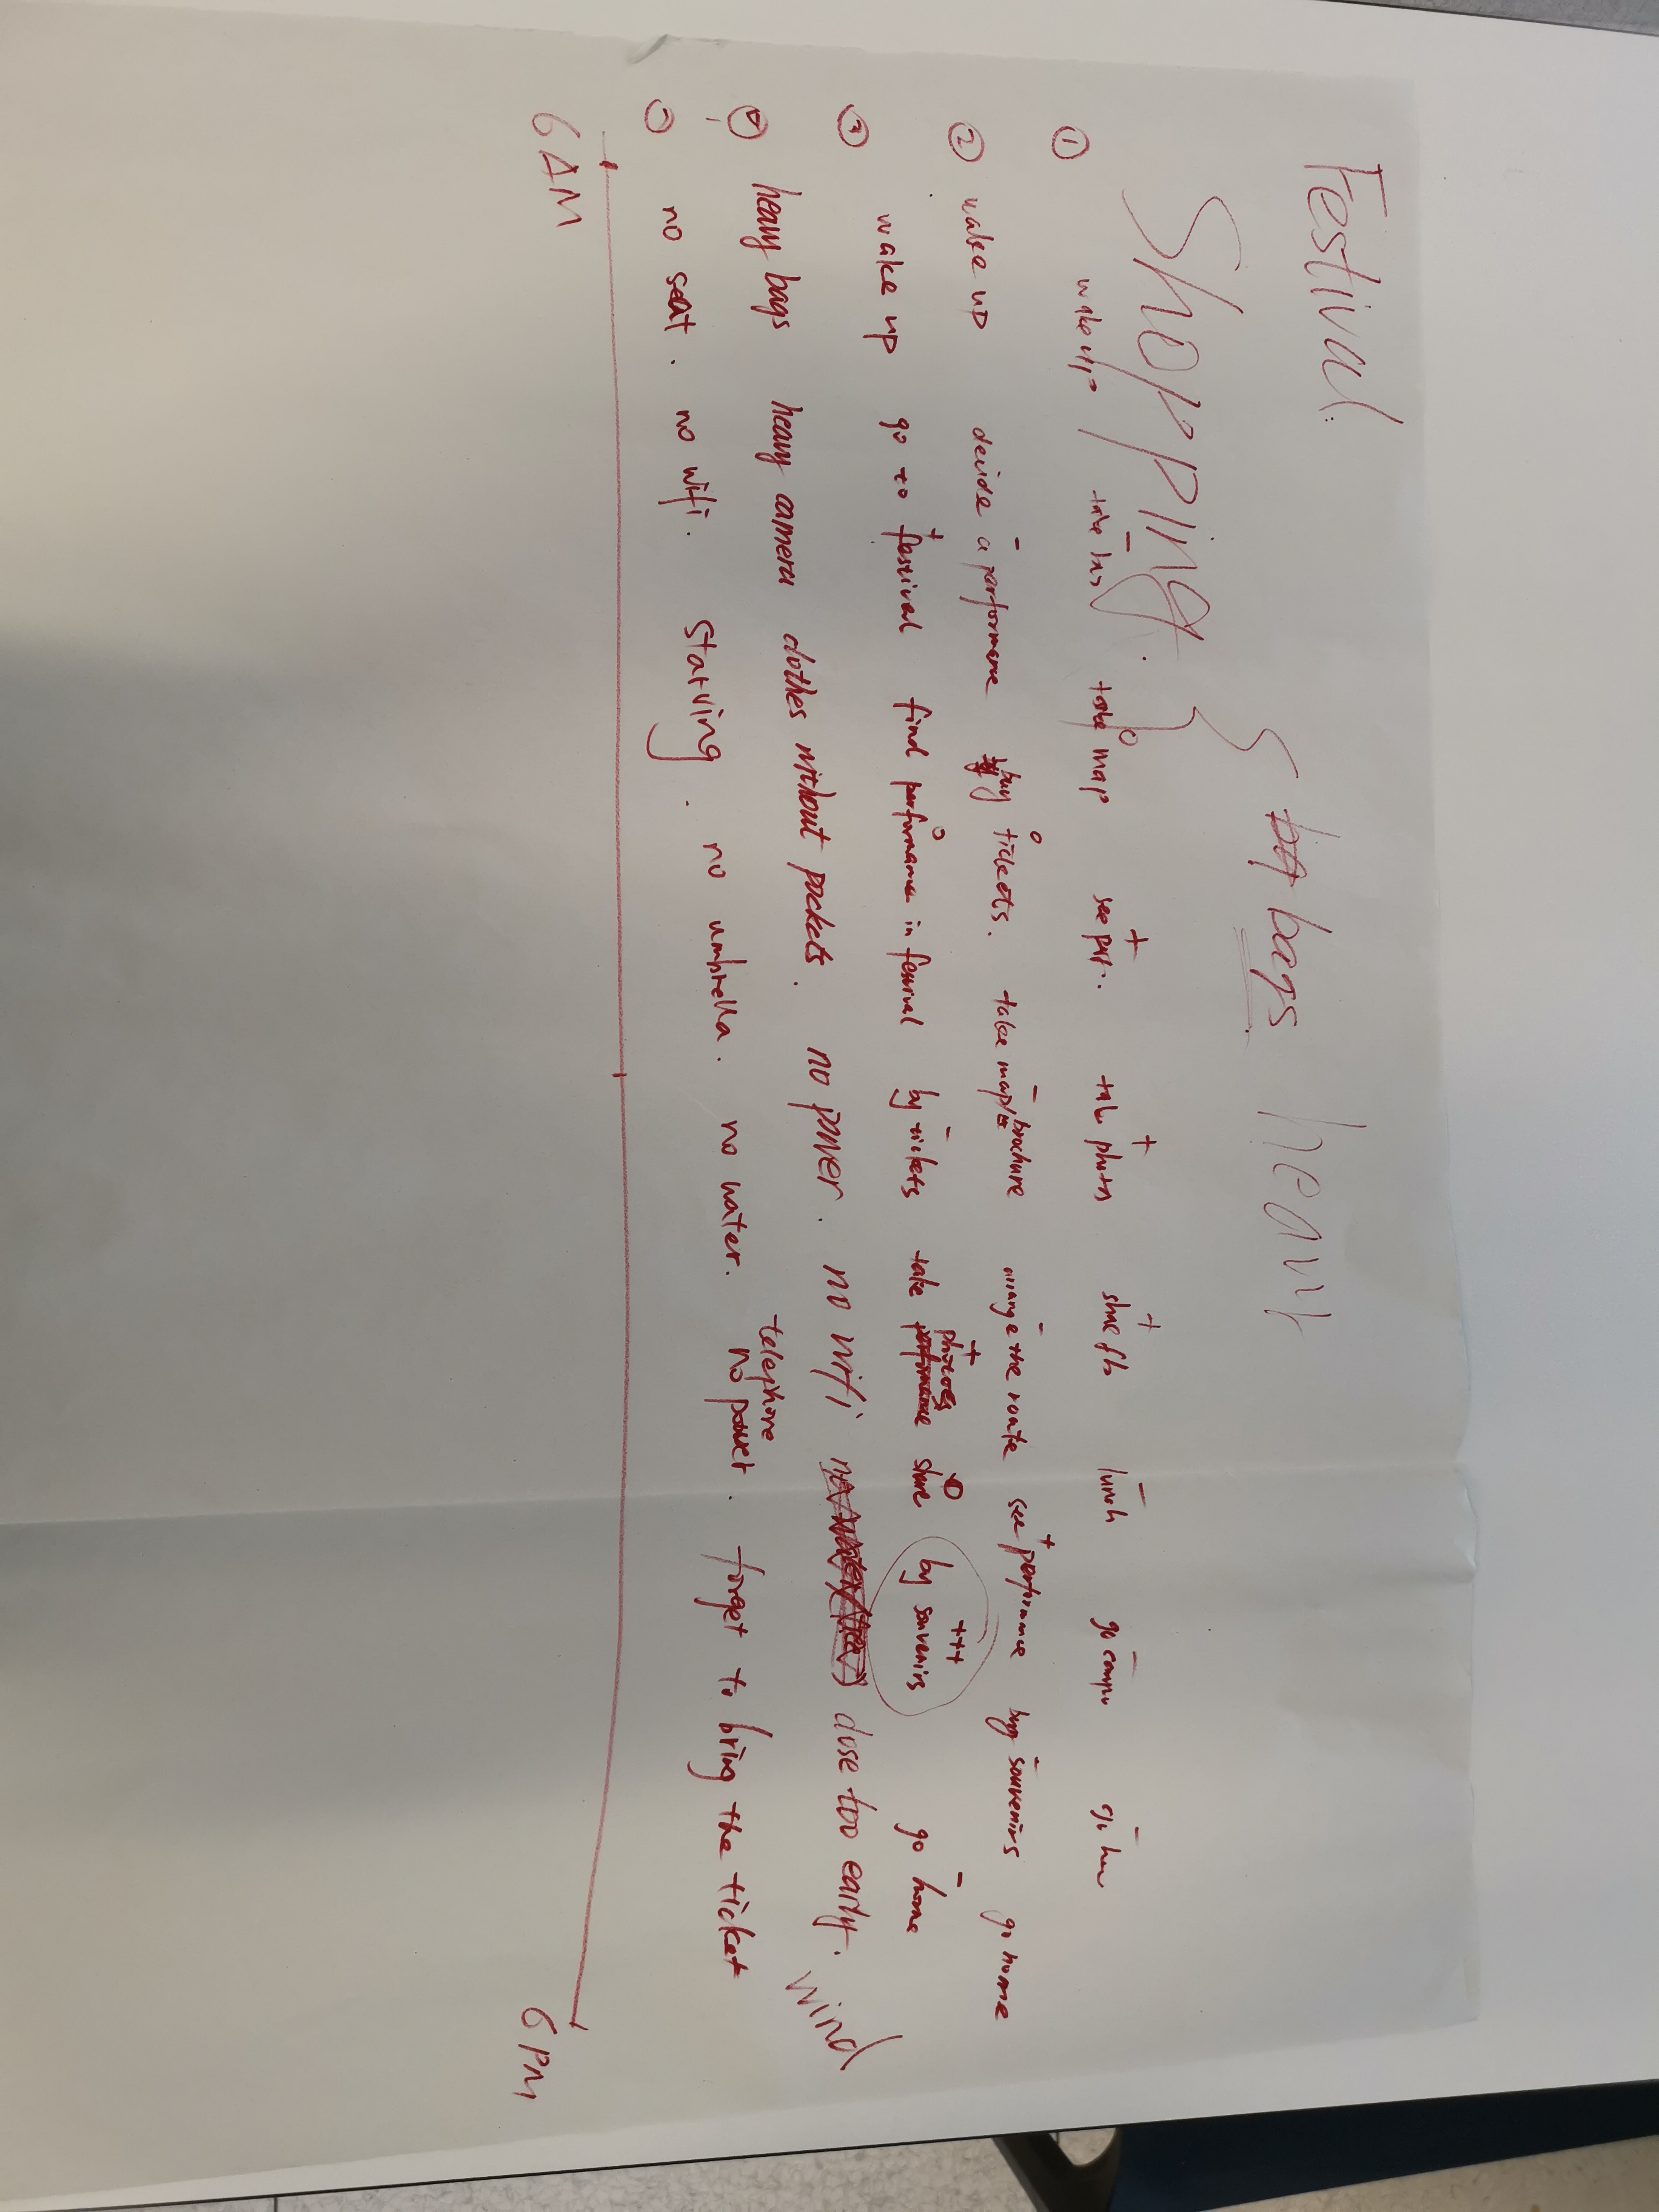 Festival.
Shopping. bags heavy
① wake up take bus take map see per.. take photos share lunch go home
② wake up decide a performance buy tickets. take map brochure arrange the route see performance buy souvenirs go home
③ wake up go to festival find performance in festival by tickets take photoes share by souvenirs go home
④ heavy bags heavy camera clothes without pockets. no power. no wifi close too early. wind
no seat. no wifi. Starving. no umbrella. no water. telephone no power. forget to bring the ticket
6 AM 6 PM